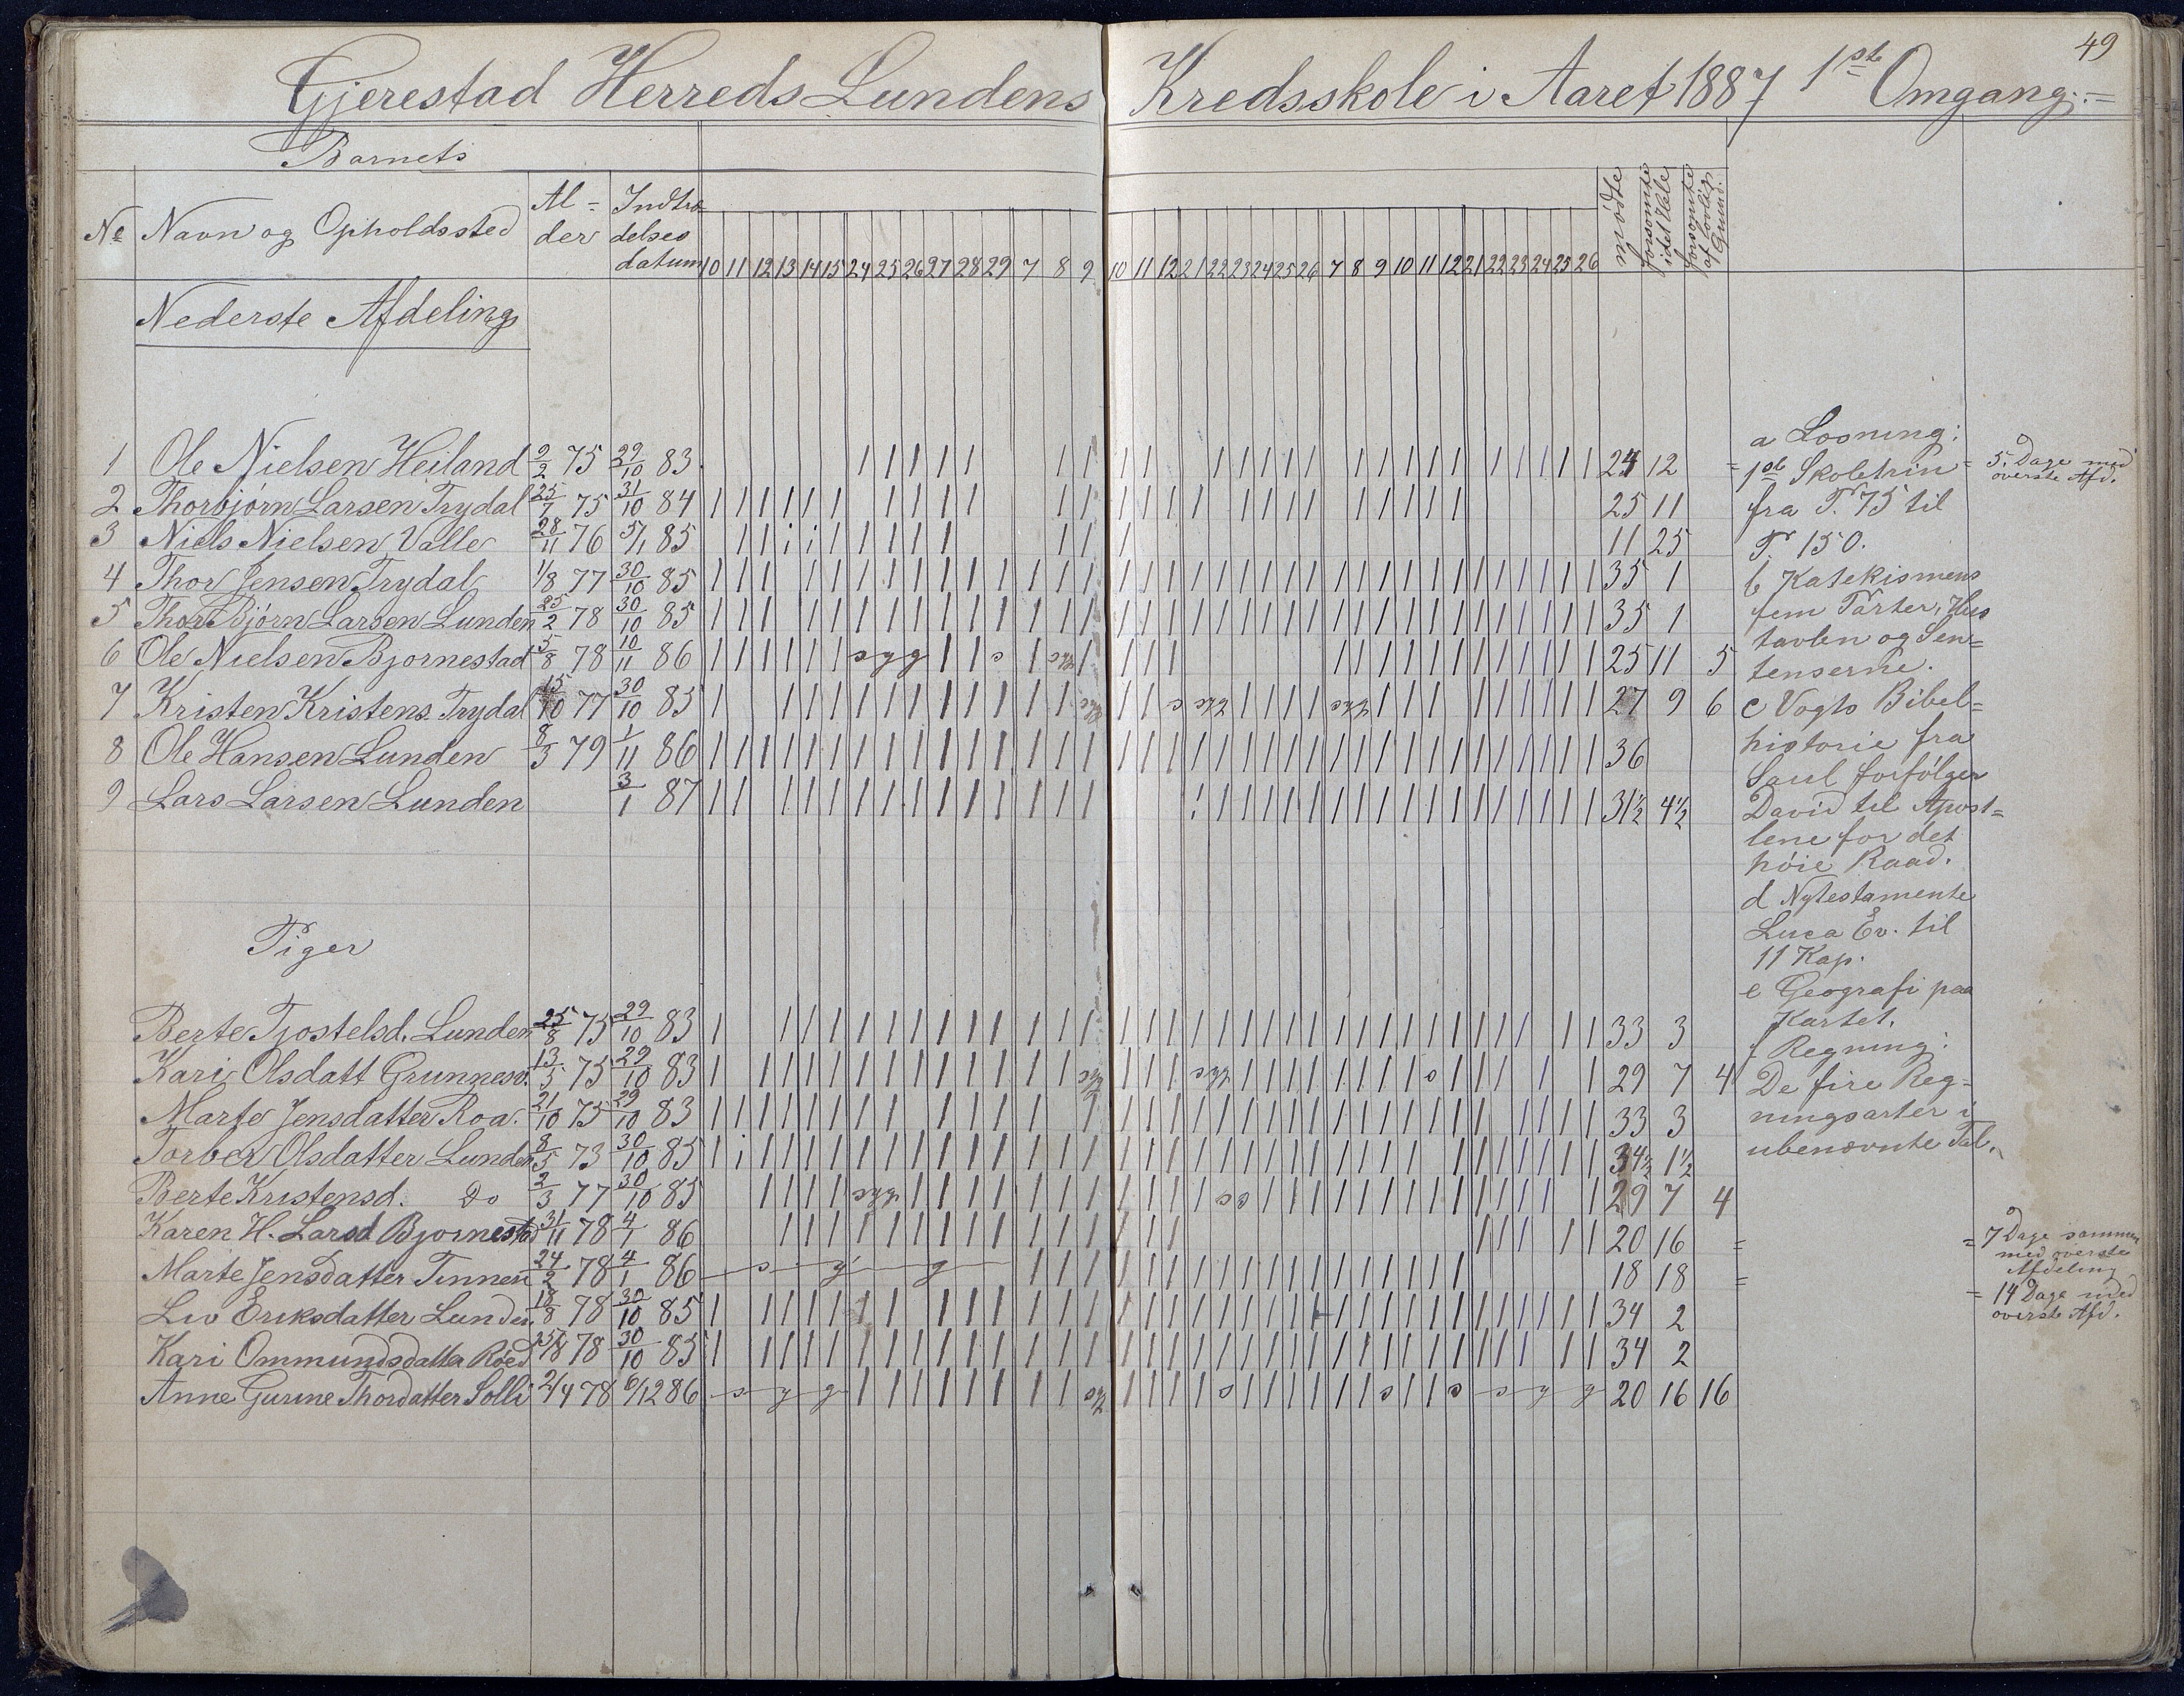 49
Gjerestad Herreds Lundens Kredsskole i Aaret 1887 1ste Omgang.
Barnets
No Navn og Opholdssted Al-der Indtræ-delses datum 10 11 12 13 14 15 24 25 26 27 28 29 7 8 9 10 11 12 21 22 23 24 25 26 7 8 9 10 11 12 21 22 23 24 25 26 mødte forsømte i det Hele forsømte af lovlig Grund.
Nederste Afdeling
1 Ole Nielsen Heiland 9/2 75 29/10 83 24 12
2 Thorbjørn Larsen Trydal 25/7 75 31/10 84 25 11
3 Niels Nielsen Valle 28/11 76 5/1 85 11 25
4 Thor Jensen Trydal 1/8 77 30/10 85 35 1
5 ThorBjørn Larsen Lunden 25/2 78 30/10 85 35 1
6 Ole Nielsen Bjornestad 5/8 78 10/11 86 syg s syg 25 11 5
7 Kristen Kristens. Trydal 15/10 77 30/10 85 syg s syg syg 27 9 6
8 Ole Hansen Lunden 8/3 79 1/11 86 36
9 Lars Larsen Lunden 3/1 87 31½ 4½
Piger
Berte Tjostelsd. Lunden 25/8 75 29/10 83 33 3
Kari Olsdatt Grunnesv. 13/5 75 29/10 83 syg syg s 29 7 4
Marte Jensdatter Roa. 21/10 75 29/10 83 33 3
Torber Olsdatter Lunden 8/5 73 30/10 85 34½ 1½
Berte Kristensd. Do 2/3 77 30/10 85 syg ss 29 7 4
Karen H. Larsd Bjornestad 31/11 78 4/1 86 20 16 =
Marte Jensdatter Tinnen 24/2 78 4/1 86 s y g 18 18 =
Liv Eriksdatter Lunden. 18/8 78 30/10 85 34 2
Kari Ommundsdatter Røed 25/8 78 30/10 85 34 2
Anne Gurine Thordatter Solli 2/4 78 6/12 86 s y g syg s s s s y g 20 16 16
a Læsning:
1ste Skoletrin
fra P. 75 til
P. 150.
b Katekismens
fem Parter, Hus
tavlen og Sen=
tenserne.
c Vogts Bibel=
historie fra
Saul forfølger
David til Apost=
lene for det
høie Raad.
d Nytestamente
Luca Ev. til
11 Kap.
e Geografi paa
Kartet.
f Regning:
De fire Reg=
ningsarter i
ubenævnte Tal.
= 5 Dage med
øverste Afd.
= 7 Dage sammen
med øverste
Afdeling
= 14 Dage med
øverste Afd.